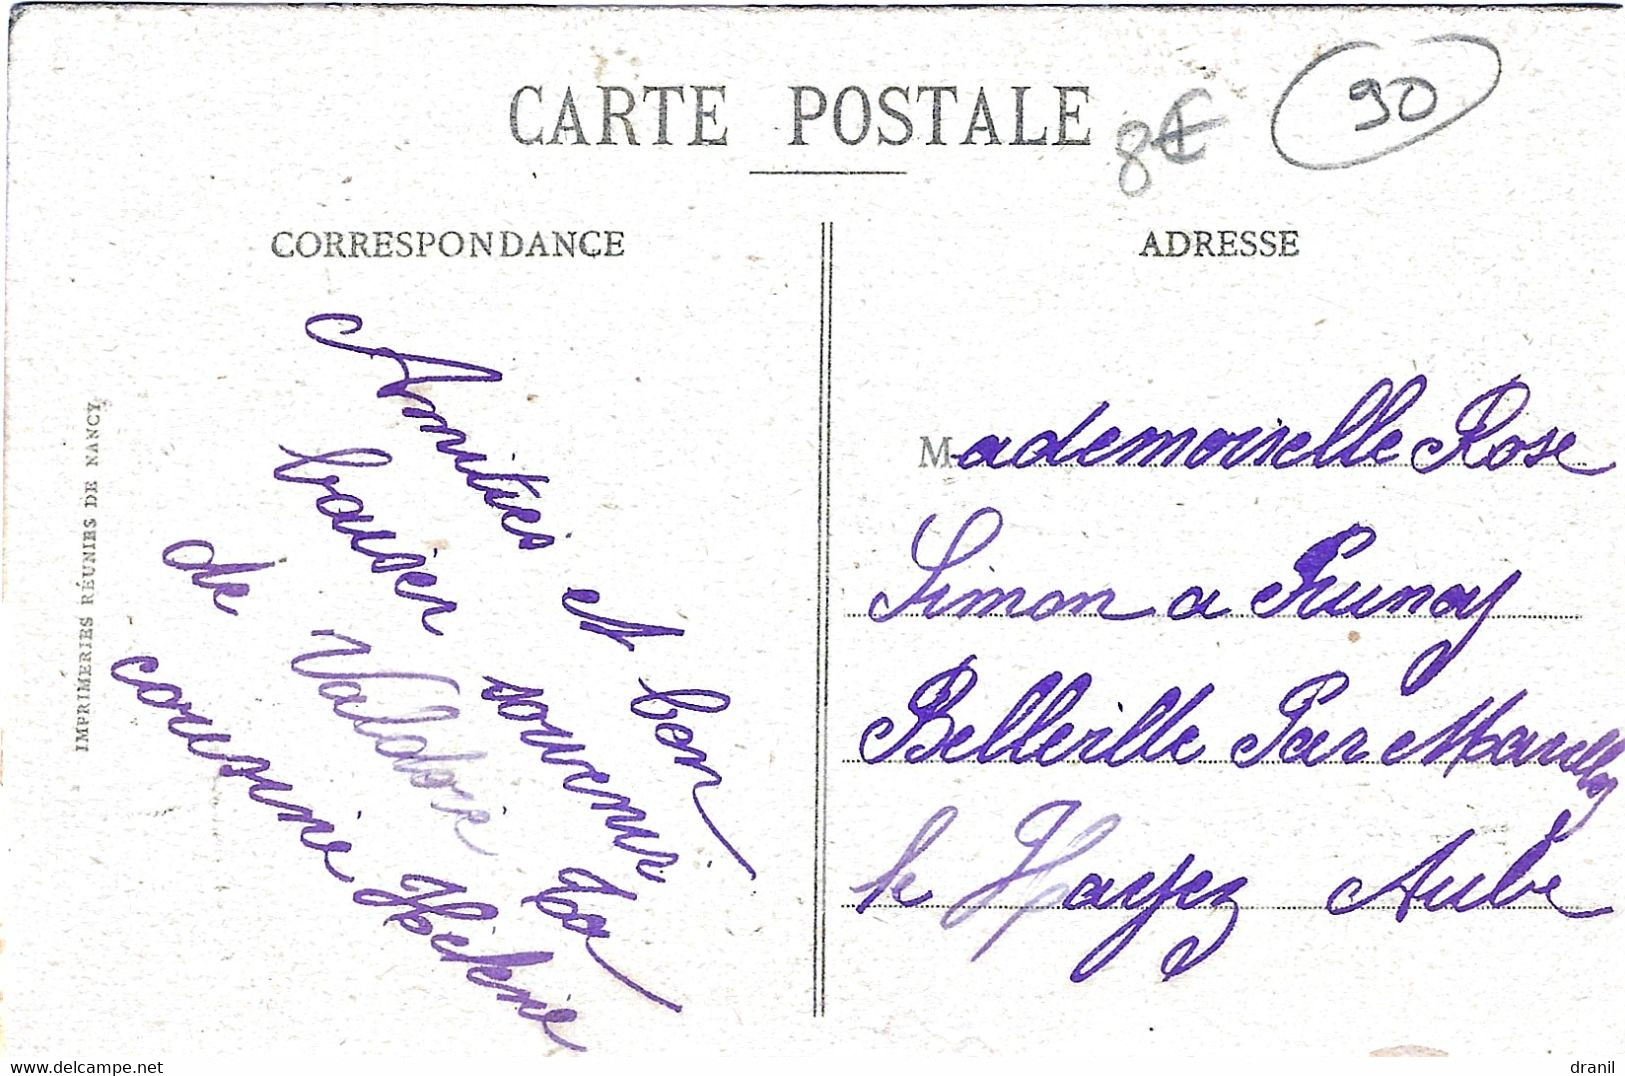 CARTE POSTALE
8€
90
CORRESPONDANCE
ADRESSE
Amitiés et bon
baiser souvenir
de Valdoie Ta
cousine Hélène
Mademoiselle Rose
Simon a Prunay
Belleville Par Marilly
le Hayez Aube
IMPRIMERIES RÉUNIES DE NANCY
delcampe.net
dranil